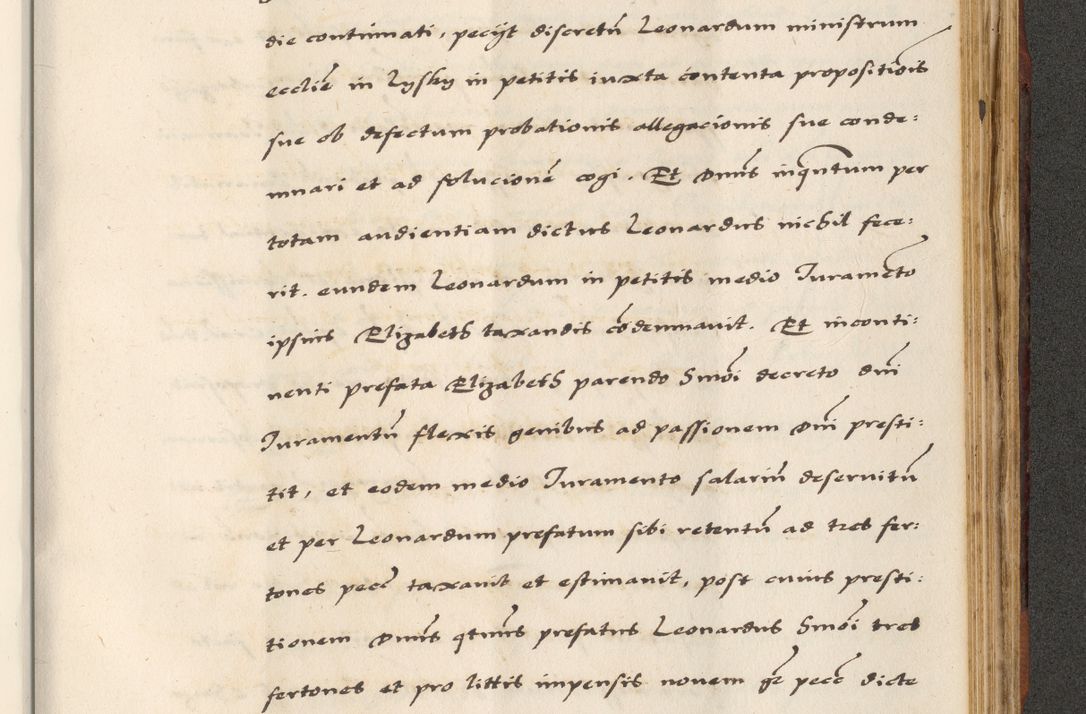 die continuati, pecijt discretũ Leonardum ministrum
ecclie in Lysky in petitis iuxta contenta propositiõis
sue ob defectum probationis allegacionis sue conde:
mnari et ad solucionẽ cogi. Et Dnus inquantum per
totam audientiam dictus Leonardus nichil fece:
rit. eundem Leonardum in petitis medio Iuramẽto
ipsius Elizabeth taxandis cõdemnauit. Et inconti:
nenti prefata Elizabeth parendo hmõi decreto dni
Iuramentũ flexis genibus ad passionem Dni presti:
tit, et eodem medio Iuramento salariũ deseruitũ
et per Leonardum prefatum sibi retentũ ad tres fer:
tones pecc taxauit et estimauit, post cuius presti:
tionem Dnus qtnus prefatus Leonardus hmõi tres
fertones et pro littis impensis nouem gr pecc dicte